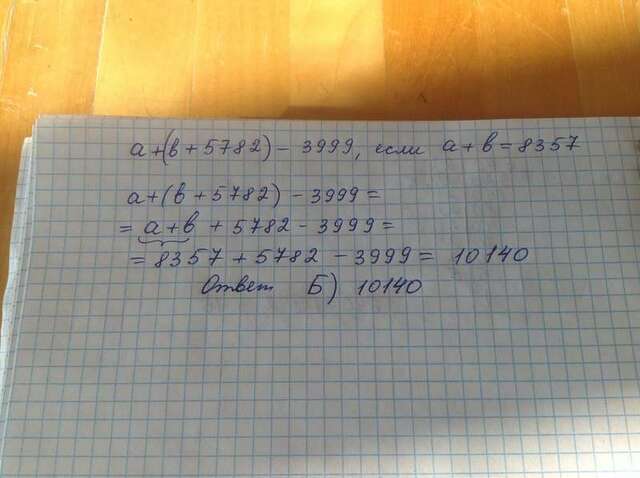 a+(в+5782)-3999, если a+в=8357
a+(в+5782)-3999=
=a+в+5782-3999=
=8357+5782-3999=10140
Ответ Б) 10140